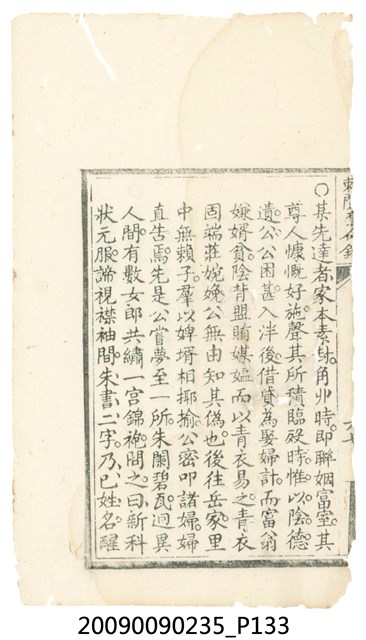 ○某先達者家本素封角丱時即聯姻富室其
尊人慷慨好施罄其所積臨歿時惟以陰德
遺公公困甚入泮後借貸為娶婦計而富翁
嫌婿貧陰背盟賄媒嫗而以青衣易之青衣
固端莊婉娩公無由知其偽也後往岳家里
中無賴子羣以婢壻相揶揄公密叩諸婦婦
直告焉先是公嘗夢至一所朱闌碧瓦迥異
人間有數女郎共繡一宮錦袍問之曰新科
狀元服諦視襟袖間朱書二字乃已姓名醒
20090090235_P133